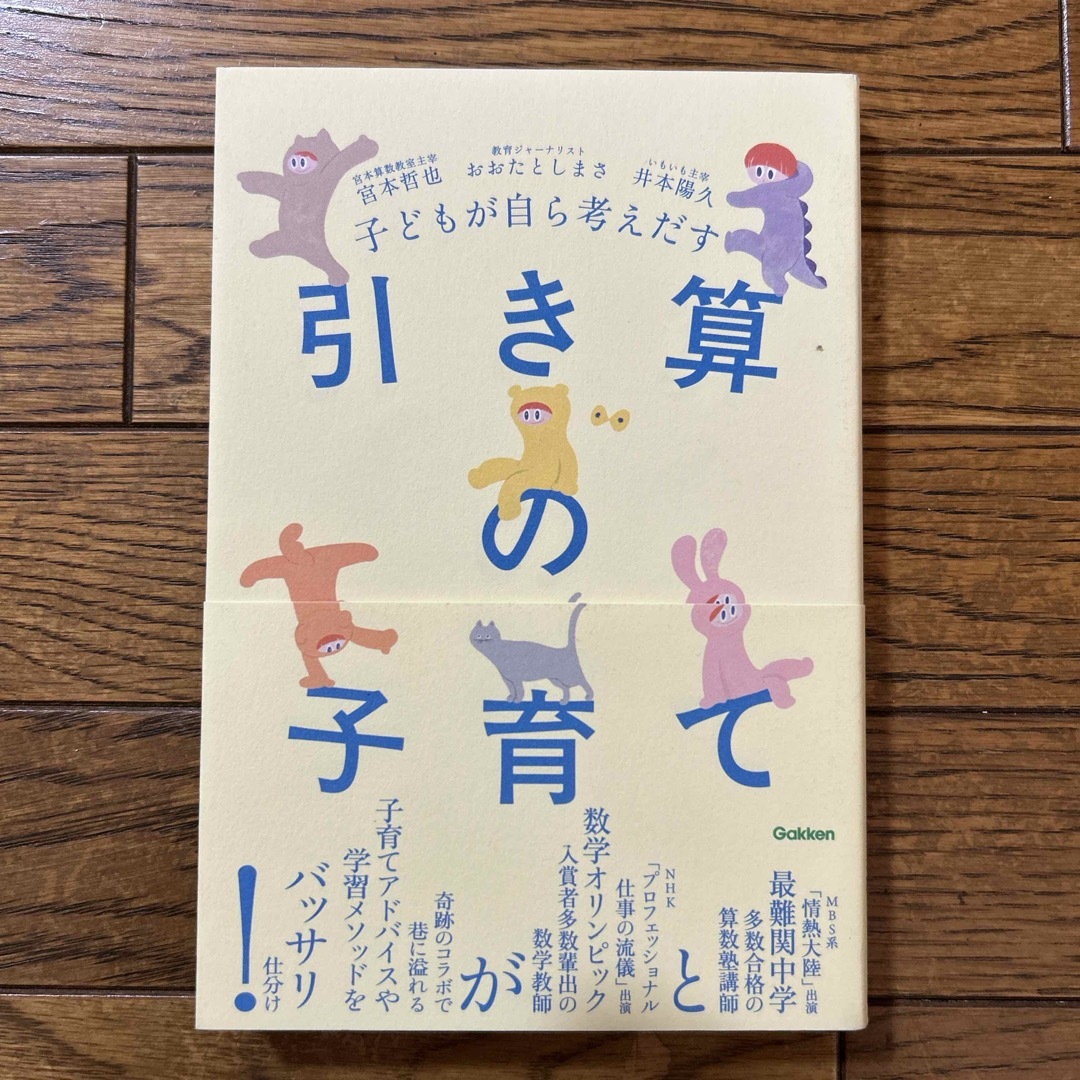 宮本算数教室主宰
宮本哲也
教育ジャーナリスト
おおたとしまさ
いもいも主宰
井本陽久
子どもが自ら考えだす
引き算
の
子育て
Gakken
MBS系
「情熱大陸」出演
最難関中学
多数合格の
算数塾講師
と
NHK
「プロフェッショナル
仕事の流儀」出演
数学オリンピック
入賞者多数輩出の
数学教師
が
奇跡のコラボで
巷に溢れる
子育てアドバイスや
学習メソッドを
バッサリ
仕分け
！